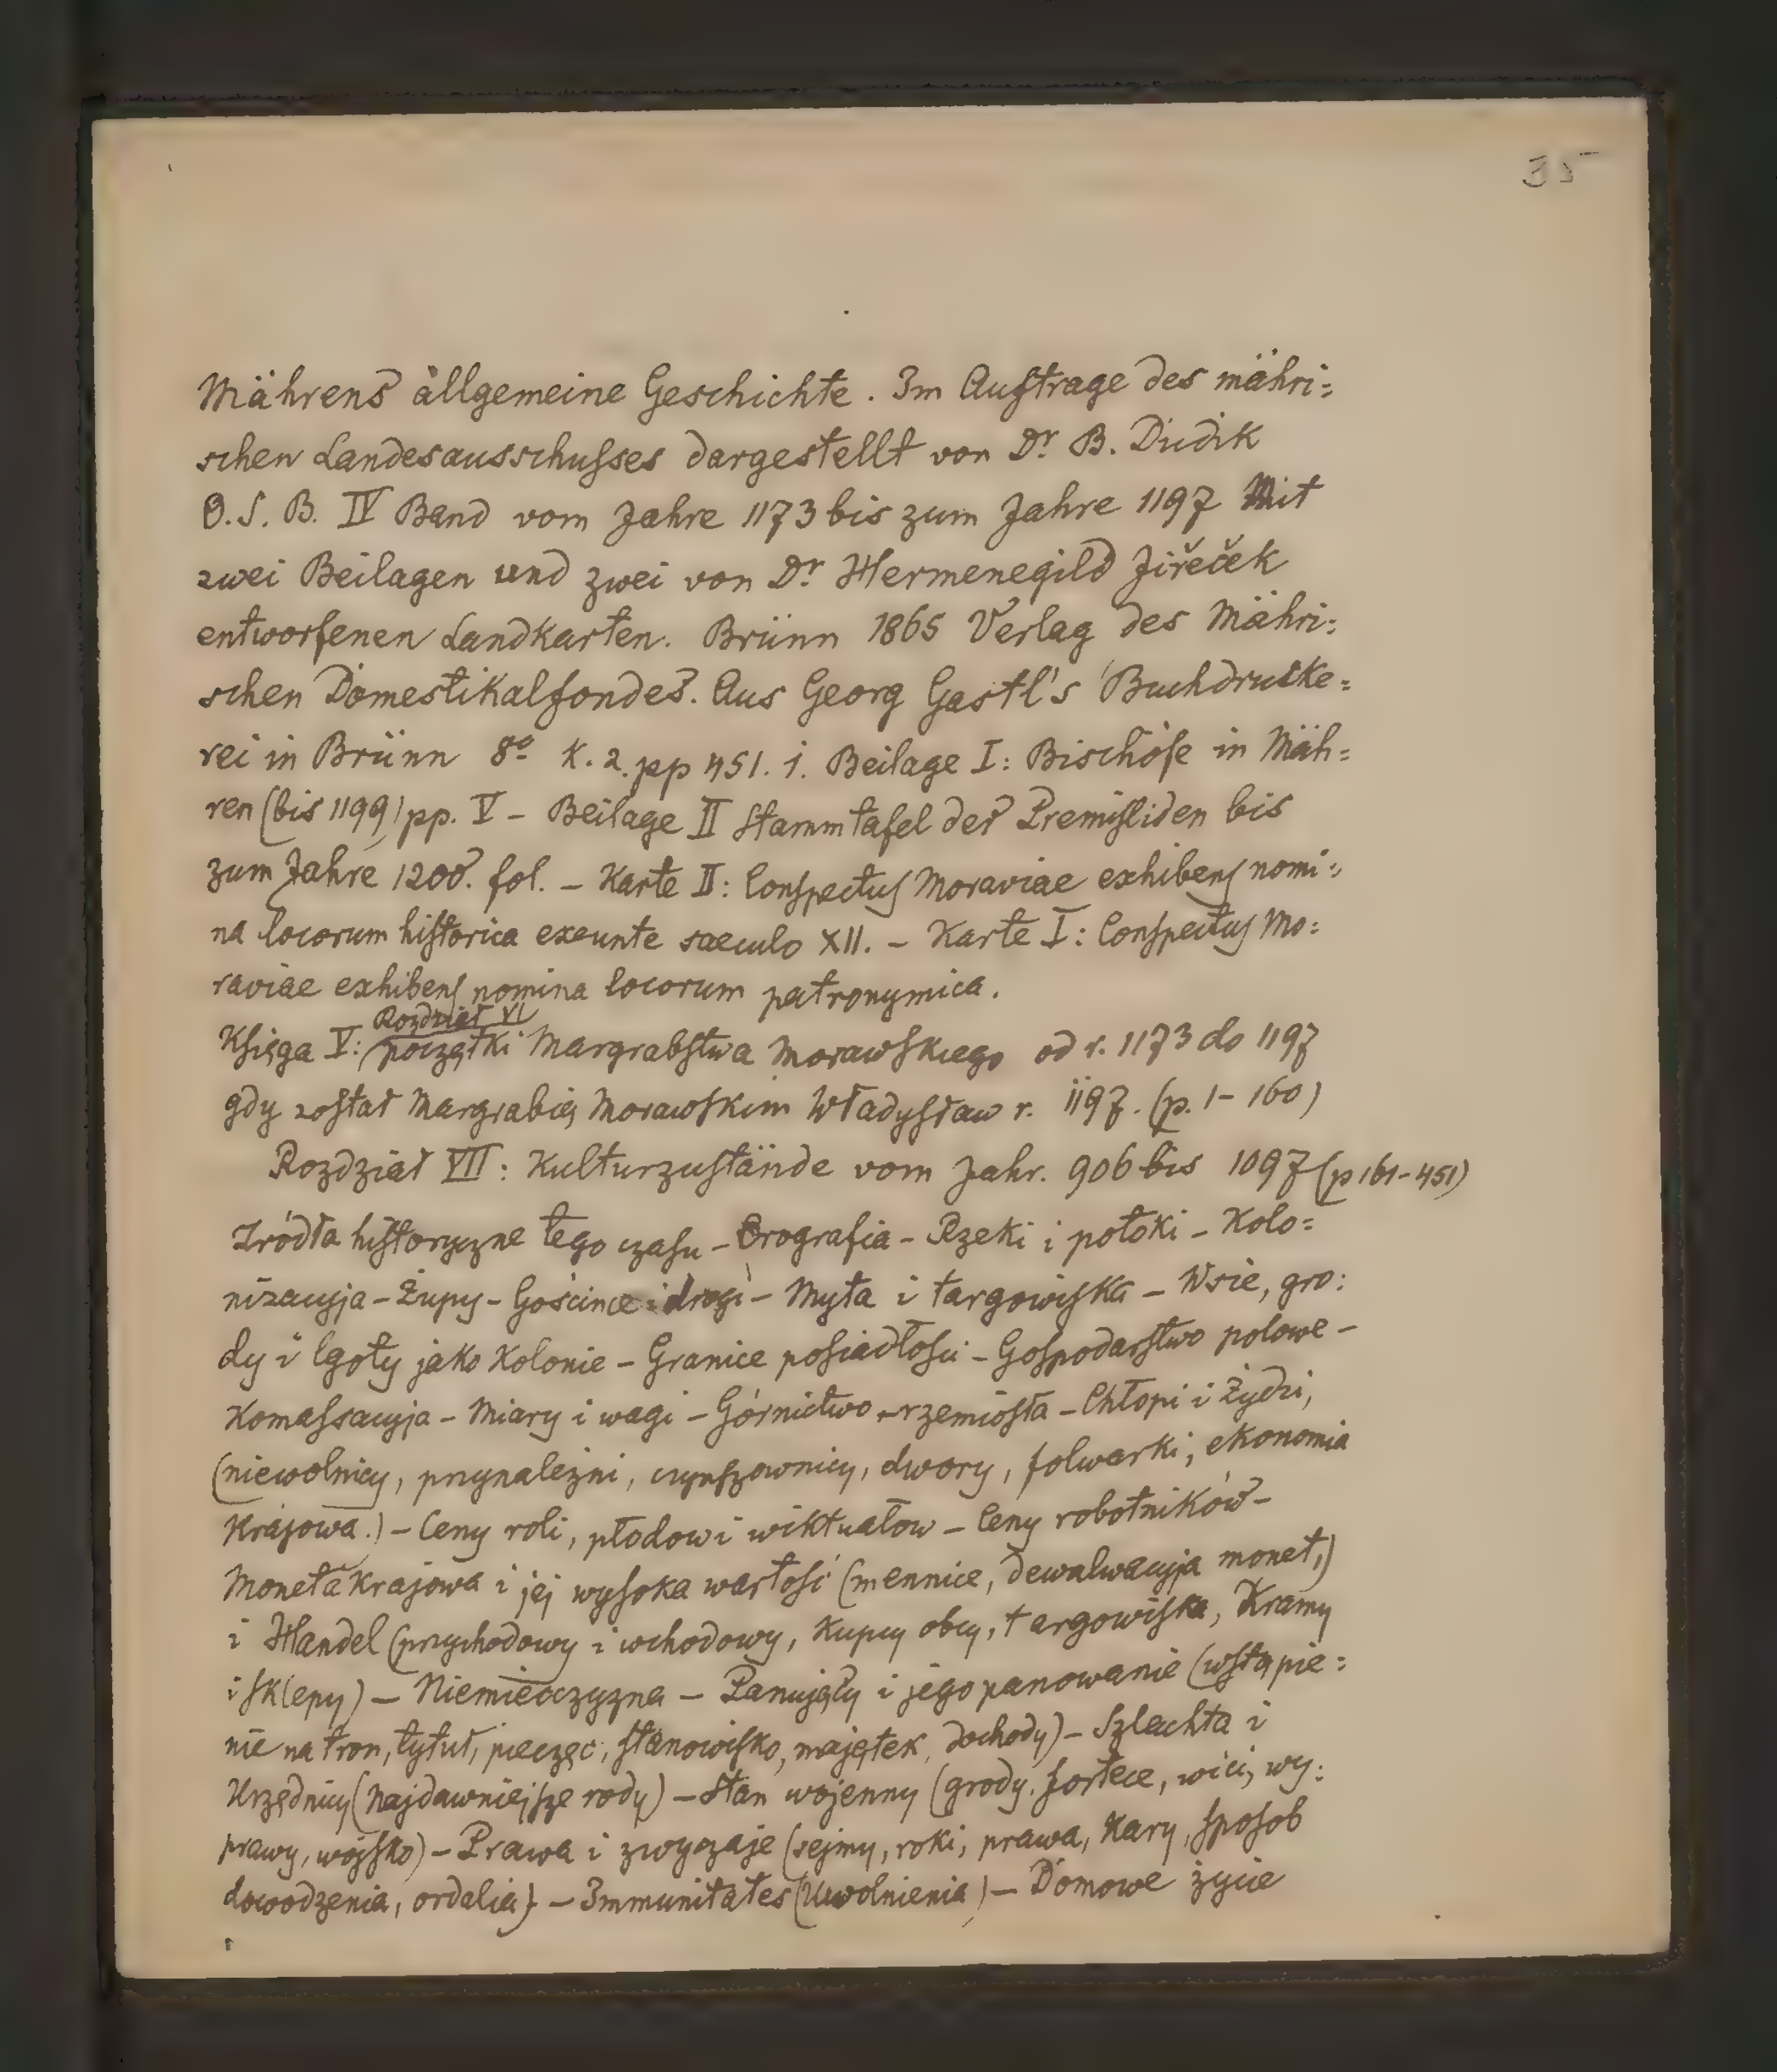 35
Mährens allgemeine Geschichte. Im Auftrage des mähri=
schen Landesausschußes dargestellt von Dr. B. Dudik
O.S.B. IV Band vom Jahre 1173 bis zum Jahre 1197 Mit
zwei Beilagen und zwei von Dr. Hermenegild Jireček
entworfenen Landkarten. Brünn 1865 Verlag des Mähri=
schen Domestikalfondes. Aus Georg Gastl's Buchdrucke=
rei in Brünn 8o K. 2. pp 451. 1. Beilage I: Bischöfe in Mäh=
ren (bis 1199) pp. V - Beilage II Stammtafel der Premisliden bis
zum Jahre 1200. fol. - Karte II: Conspectus Moraviae exhibens nomi=
na locorum historica exeunte saeculo XII. - Karte I: Conspectus Mo=
raviae exhibens nomina locorum patronymica.
Rozdział VI
Księga V: początki Margrabstwa Morawskiego od r. 1173 do 1197
gdy został Margrabią Morawskim Władysław r. 1197. (p. 1-160)
Rozdział VII: Kulturzustände vom Jahr. 906 bis 1097 (p 161-451)
Zródła historyczne tego czasu - Orografia - Rzeki i potoki - Kolo=
nizacyja - Żupy - Goścince i drogi - Myta i targowiska - Wsie, gro=
dy i lgoty jako Kolonie - Granice posiadłości - Gospodarstwo polowe -
Komassacyja - Miary i wagi - Górnictwo - rzemiosła - Chłopi i Żydzi,
(niewolnicy, przynależni, czynszownicy, dwory, folwarki, ekonomia
Krajowa.) - Ceny roli, płodow i wiktuałow - Ceny robotników -
Moneta krajowa i jej wysoka wartość (mennice, dewalwacyja monet,)
i Handel (przychodowy i wchodowy, Kupcy obcy, targowiska, Kramy
i sklepy) - Niemieczyzna - Panujący i jego panowanie (wstąpie=
nie na tron, tytuł, pieczęć, stanowisko, majątek, dochody) - Szlachta i
Urzędnicy (Najdawniejsze rody) - Stan wojenny (grody, fortece, wici, wy=
prawy, wojsko) - Prawa i zwyczaje (sejmy, roki, prawa, Kary, sposob
dowodzenia, ordalia) - Immunitates (Uwolnienia) - Domowe życie